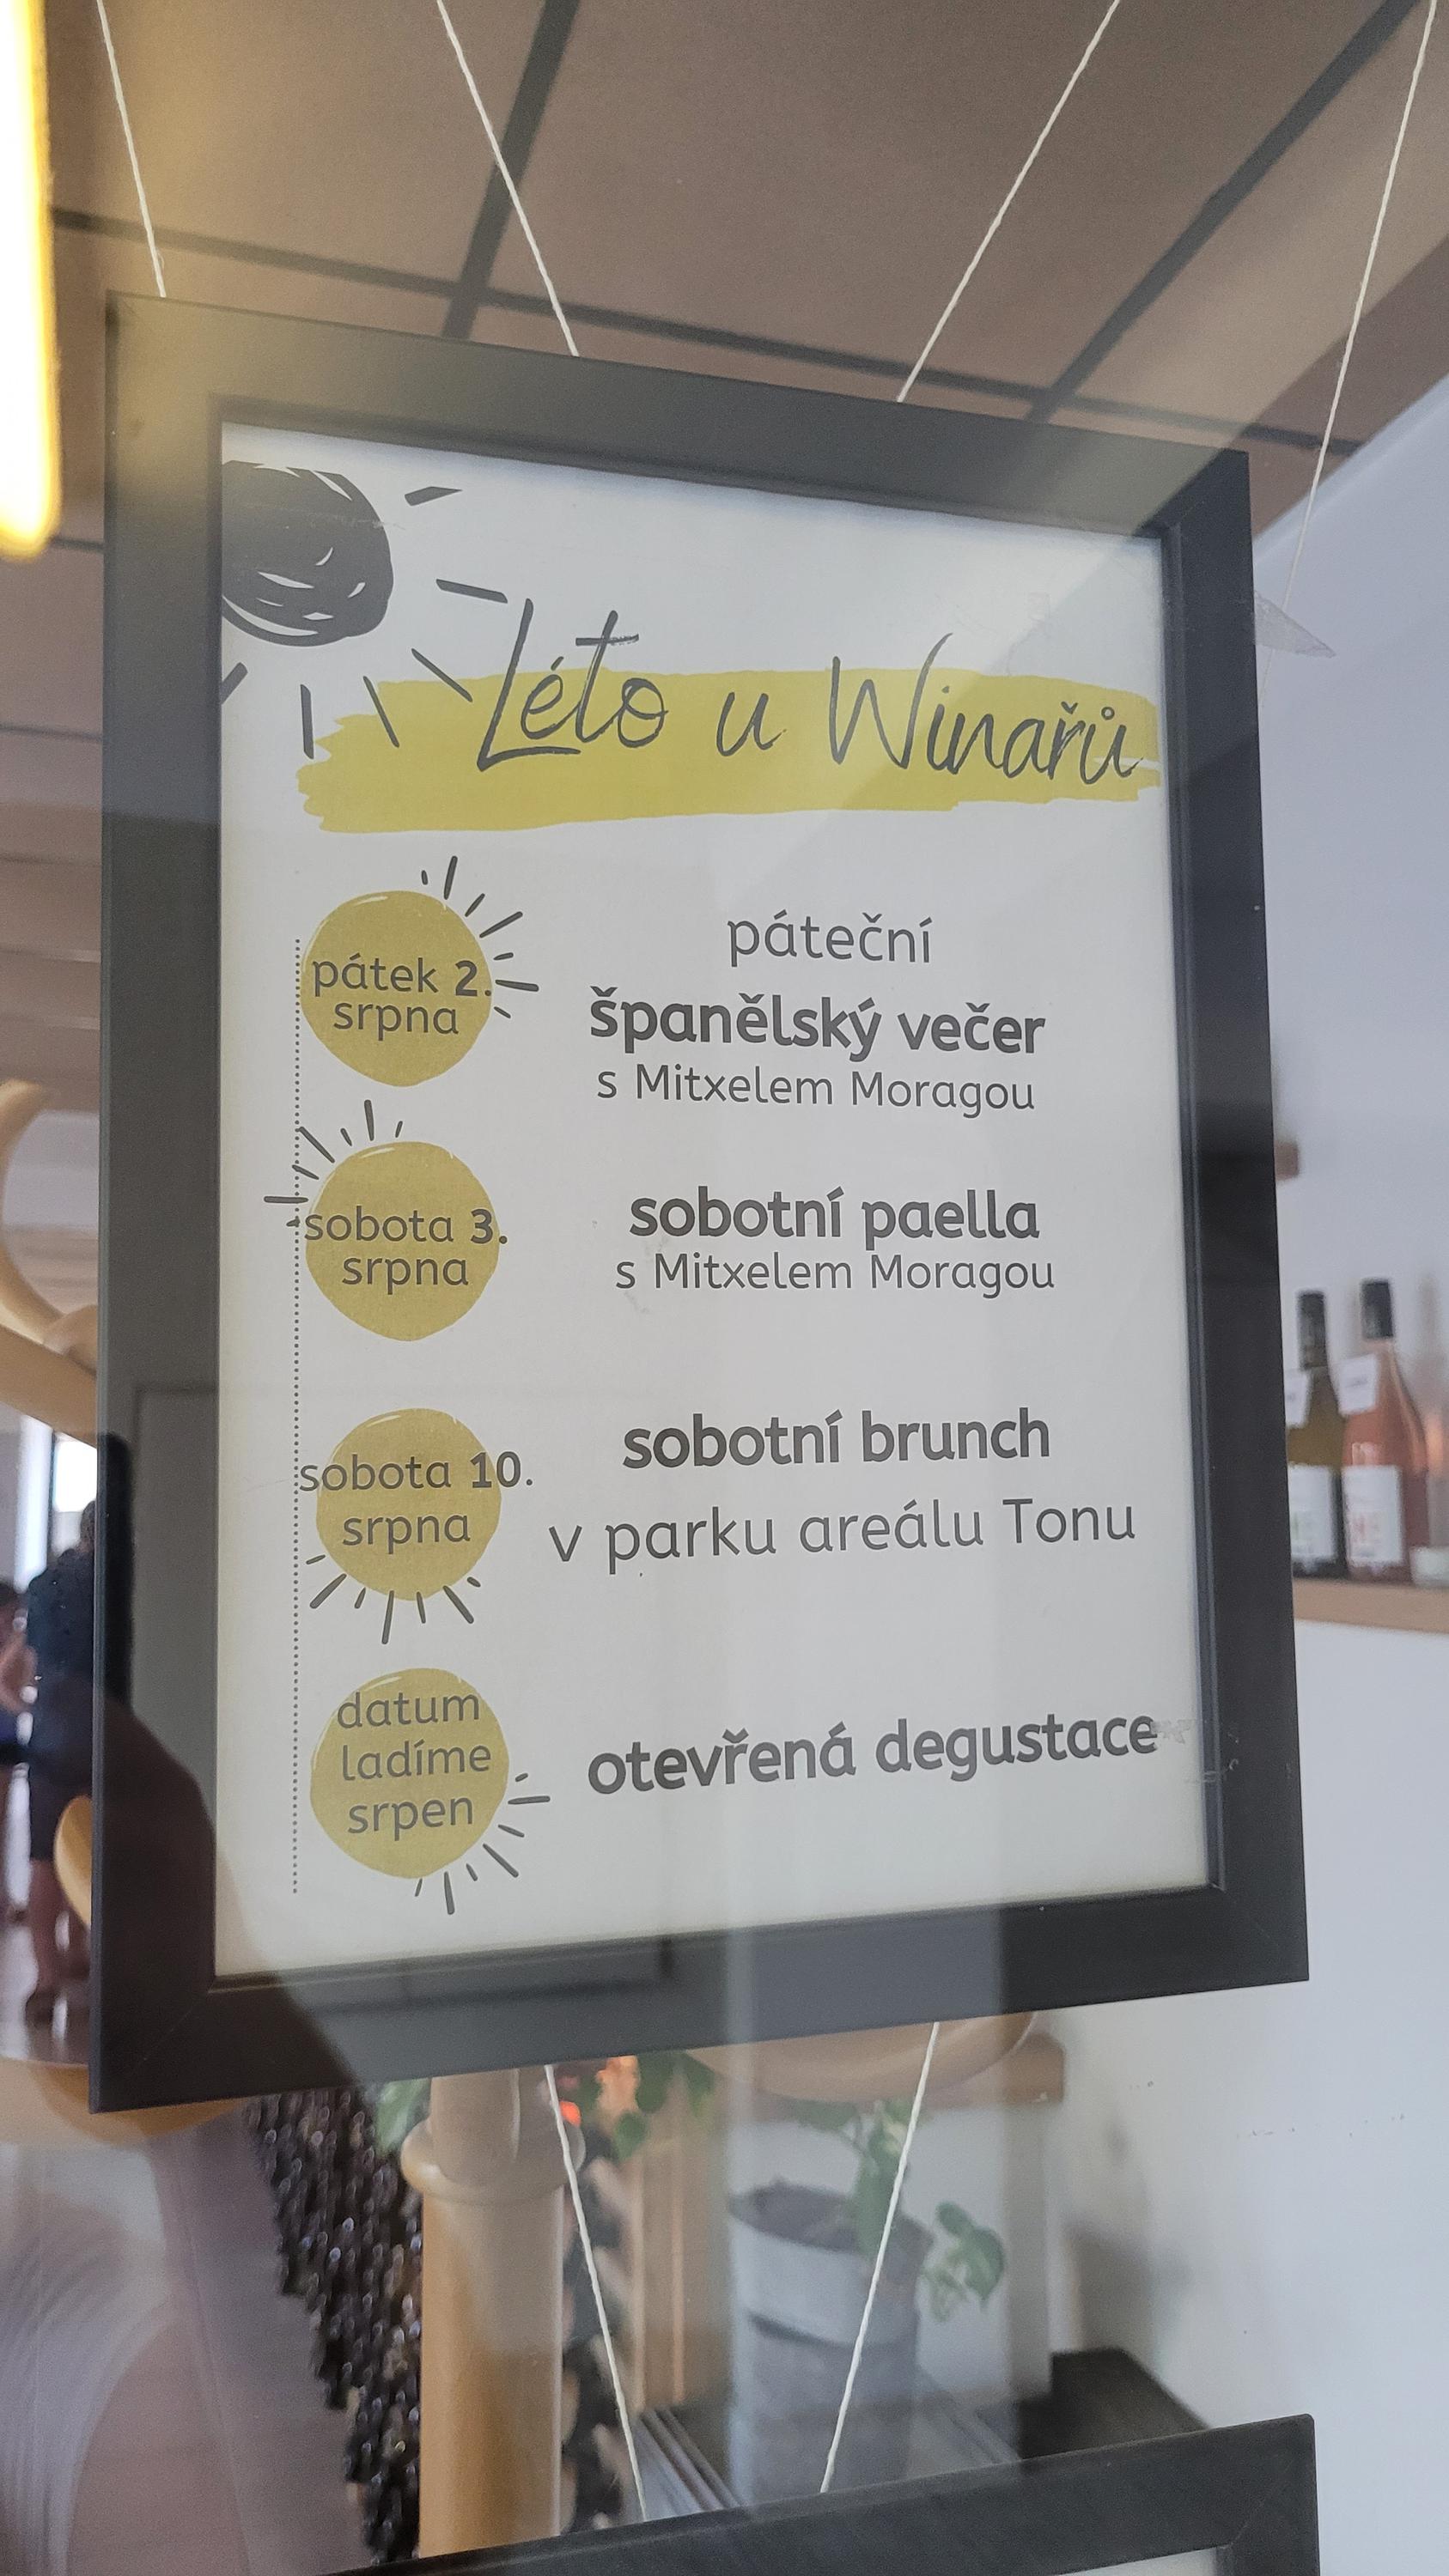 Léto u Winařů
pátek 2.
srpna
páteční
španělský večer
s Mitxelem Moragou
sobota 3.
srpna
sobotní paella
s Mitxelem Moragou
sobota 10.
srpna
sobotní brunch
v parku areálu Tonu
datum
ladíme
srpen
otevřená degustace